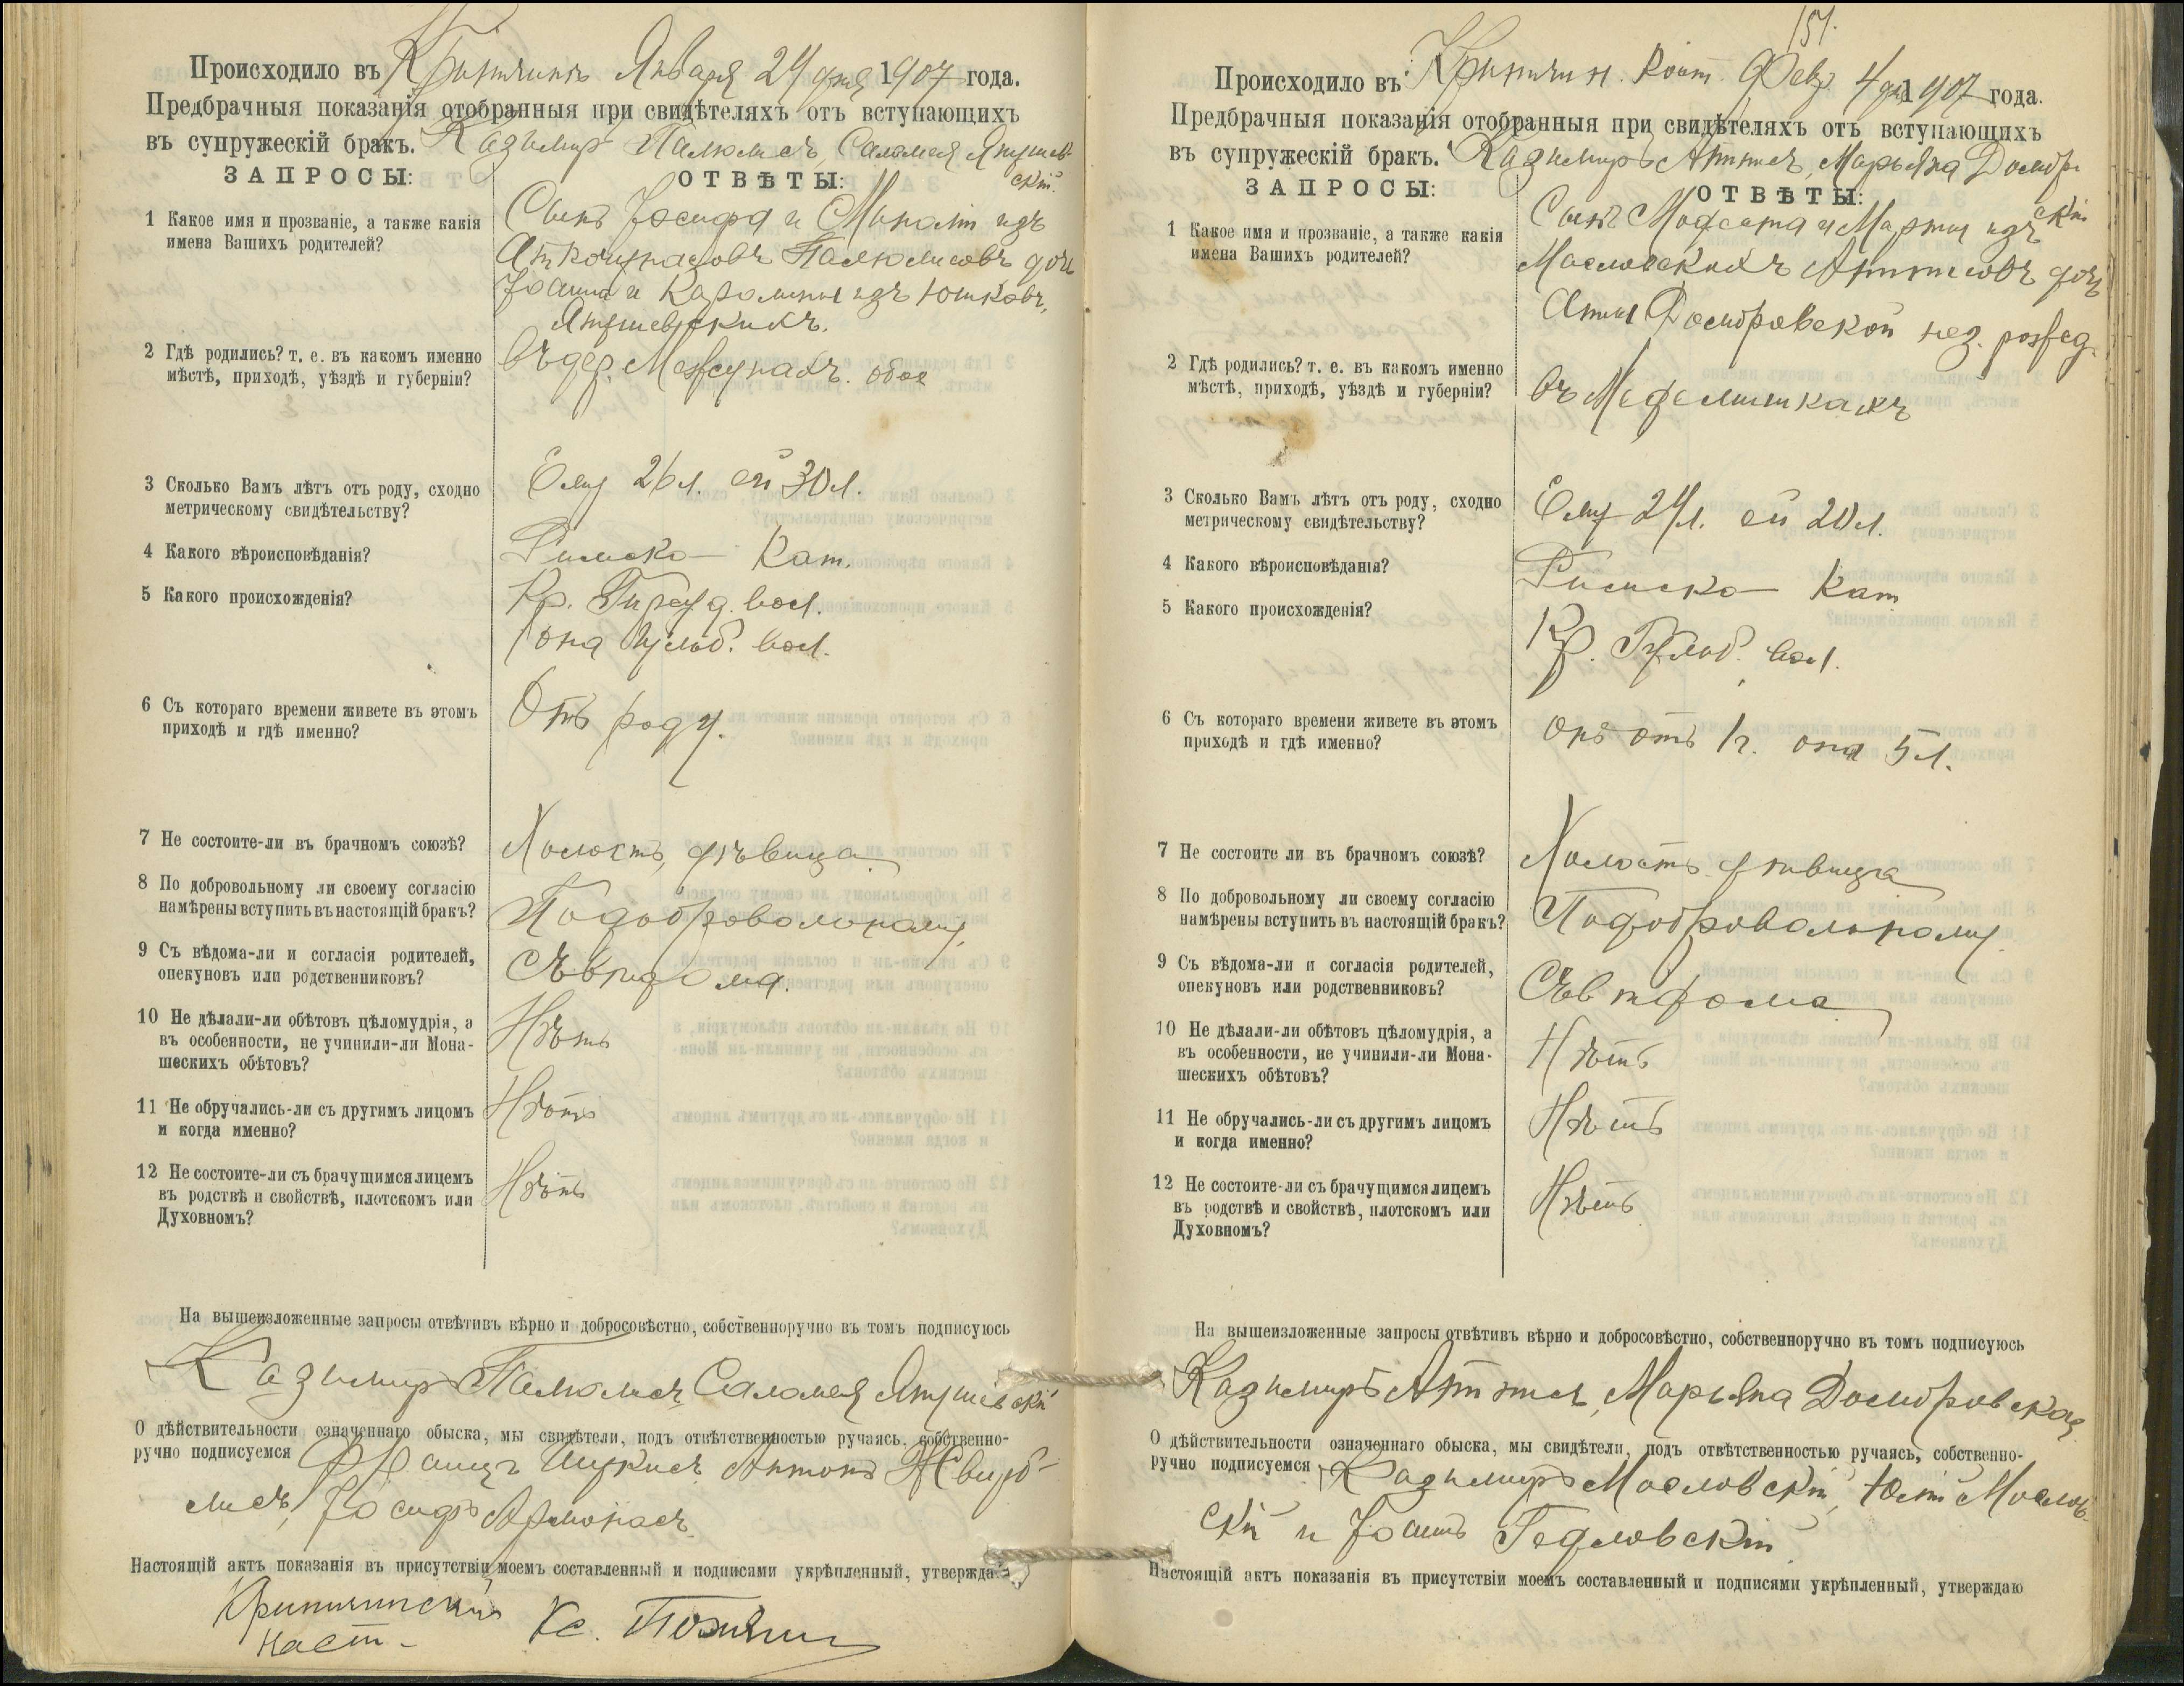 Происходило въ Января 24 дня 1907 года.
Предбрачныя показанія отобранныя при свидѣтеляхъ отъ вступающихъ
въ супружескій бракъ. Казимиръ Палюлисъ, Саломея Янушев-
скій.
ЗАПРОСЫ: ОТВѢТЫ:
1 Какое имя и прозваніе, а также какія
имена Вашихъ родителей?
Сынъ Іосифа и изъ
Палюлисовъ дочь
Іоанна и Каролины изъ Юшковъ,
Янушевскихъ.
2 Гдѣ родились? т. е. въ какомъ именно
мѣстѣ, приходѣ, уѣздѣ и губерніи?
въ дер. обое
3 Сколько Вамъ лѣтъ отъ роду, сходно
метрическому свидѣтельству?
Ему 26 л. ей 30 л.
4 Какого вѣроисповѣданія?
Римско- Кат.
5 Какого происхожденія?
Кр. вол.
она вол.
6 Съ котораго времени живете въ этомъ
приходѣ и гдѣ именно?
Отъ роду.
7 Не состоите-ли въ брачномъ союзѣ?
Холостъ, дѣвица
8 По добровольному ли своему согласію
намѣрены вступить въ настоящій бракъ?
По добровольному,
9 Съ вѣдома-ли и согласія родителей,
опекуновъ или родственниковъ?
Съ вѣдома.
10 Не дѣлали-ли обѣтовъ цѣломудрія, а
въ особенности, не учинили-ли Мона-
шескихъ обѣтовъ?
Нѣтъ
11 Не обручались-ли съ другимъ лицомъ
и когда именно?
Нѣтъ
12 Не состоите-ли съ брачущимся лицемъ
въ родствѣ и свойствѣ, плотскомъ или
Духовномъ?
Нѣтъ
На вышеизложенные запросы отвѣтивъ вѣрно и добросовѣстно, собственноручно въ томъ подписуюсь
Казимиръ Палюлисъ, Саломея Янушевскій
О дѣйствительности означеннаго обыска, мы свидѣтели, подъ отвѣтственностью ручаясь, собственно-
ручно подписуемся Францъ Антонъ
Іосифъ Армонасъ
Настоящій актъ показанія въ присутствіи моемъ составленный и подписами укрѣпленный, утверждаю
Кринчинскій
наст. Кс.
151.
Происходило въ Кринчин. Кост. Февр. 4 дня 1907 года.
Предбрачныя показанія отобранныя при свидѣтеляхъ отъ вступающихъ
въ супружескій бракъ. Казимиръ Марьяна Домбр.
скій
ЗАПРОСЫ: ОТВѢТЫ:
1 Какое имя и прозваніе, а также какія
имена Вашихъ родителей?
Сынъ Модеста и Марты изъ
Масловскихъ дочь
Анны Домбровской
2 Гдѣ родились? т. е. въ какомъ именно
мѣстѣ, приходѣ, уѣздѣ и губерніи?
въ
3 Сколько Вамъ лѣтъ отъ роду, сходно
метрическому свидѣтельству?
Ему 24 л. ей 20 л.
4 Какого вѣроисповѣданія?
Римско- Кат
5 Какого происхожденія?
Кр. вол.
6 Съ котораго времени живете въ этомъ
приходѣ и гдѣ именно?
онъ отъ 1 г. она 5 л.
7 Не состоите ли въ брачномъ союзѣ?
Холостъ дѣвица
8 По добровольному ли своему согласію
намѣрены вступить въ настоящій бракъ?
По добровольному
9 Съ вѣдома-ли и согласія родителей,
опекуновъ или родственниковъ?
Съ вѣдома
10 Не дѣлали-ли обѣтовъ цѣломудрія, а
въ особенности, не учинили-ли Мона-
шескихъ обѣтовъ?
Нѣтъ
11 Не обручались-ли съ другимъ лицомъ
и когда именно?
Нѣтъ
12 Не состоите-ли съ брачущимся лицемъ
въ родствѣ и свойствѣ, плотскомъ или
Духовномъ?
Нѣтъ
На вышеизложенные запросы отвѣтивъ вѣрно и добросовѣстно, собственноручно въ томъ подписуюсь
Казимиръ Марьяна Домбровская
О дѣйствительности означеннаго обыска, мы свидѣтели, подъ отвѣтственностью ручаясь, собственно-
ручно подписуемся Казимиръ Масловскій, Маслов-
скій и Іоанъ Гедловскій
Настоящій актъ показанія въ присутствіи моемъ составленный и подписами укрѣпленный, утверждаю